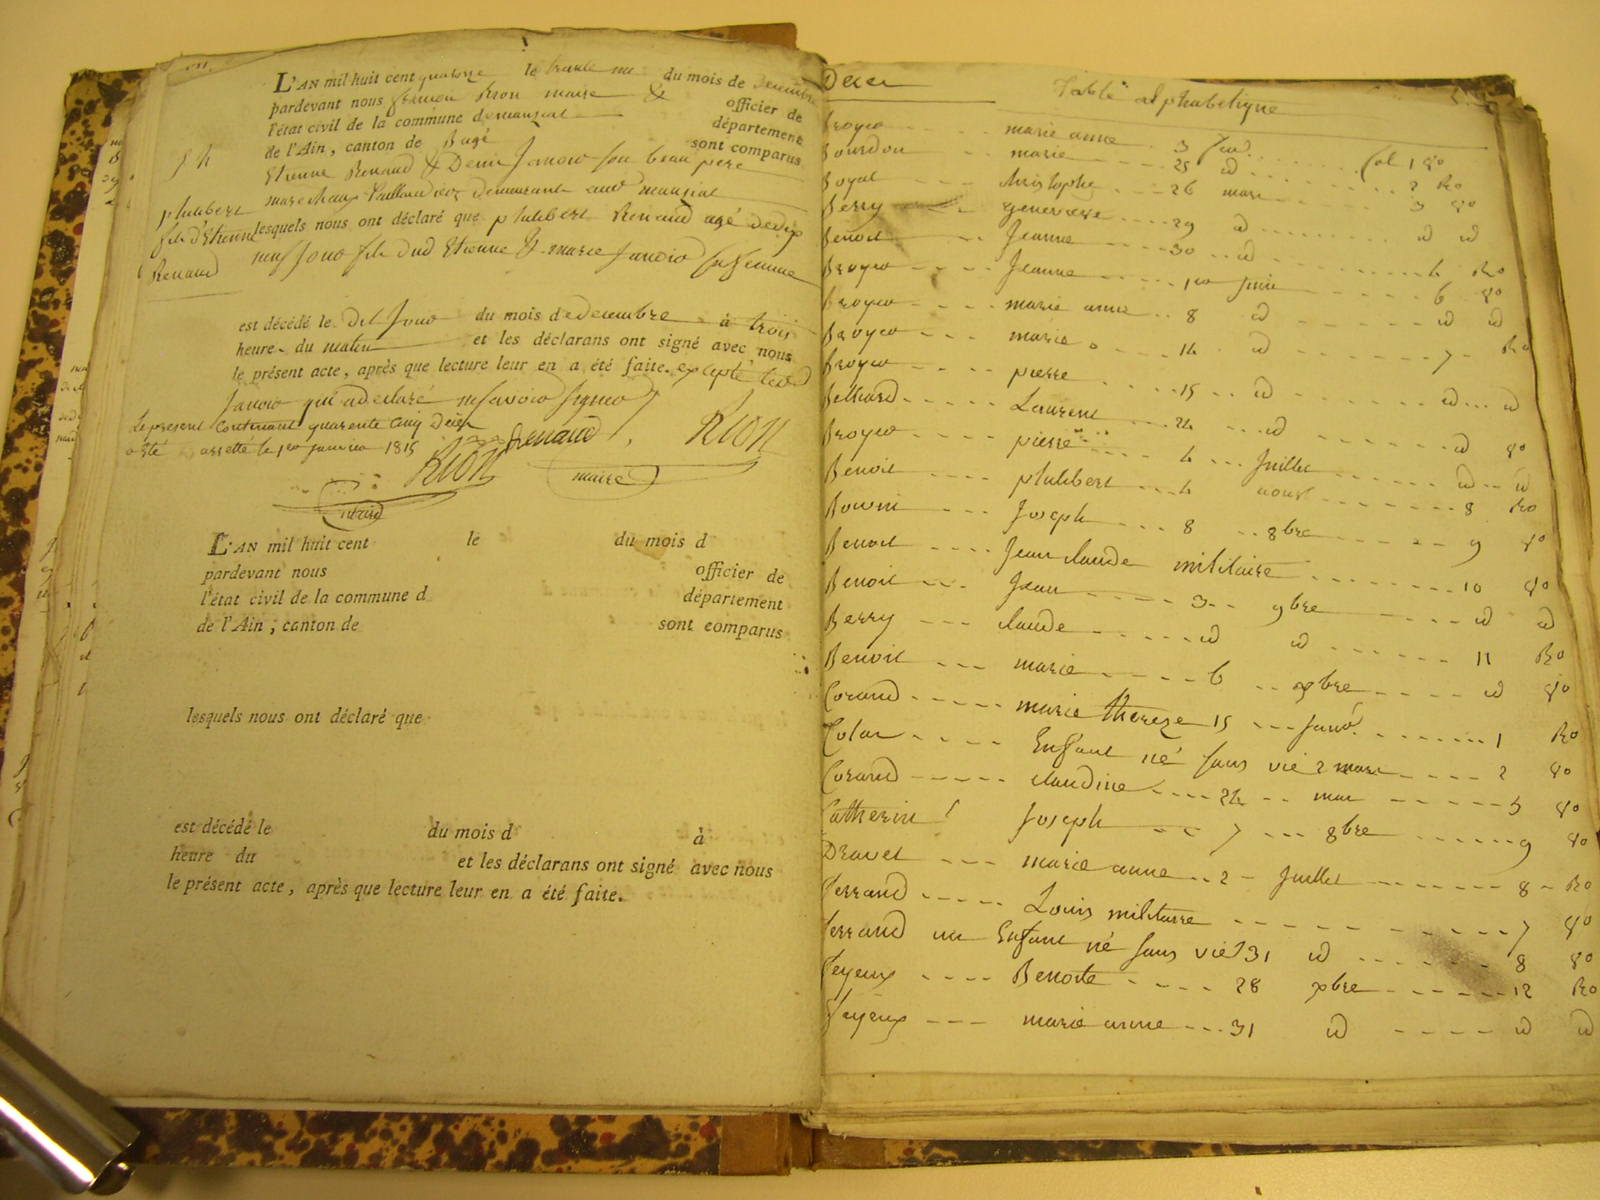 L'AN mil huit cent quatorze le trente un du mois de decembre
pardevant nous Rion maire & officier de
l'état civil de la commune demanziat département
de l'Ain, canton de Bagé sont comparus
Etienne Renaud & Denis Janvio son beau pere
marechaux Taillandiers demeurant audt manziat
lesquels nous ont déclaré que philibert Renaud agé dedix
neuf jours fils dud Etienne & marie Janvio sa femme
philibert
fils d'Etienne
Renaud
est décédé le dit Jour du mois dedecembre à trois
heure du matin et les déclarans ont signé avec nous
le présent acte, après que lecture leur en a été faite. excepté led
Janvio qui adeclaré nesavoir signer
Le present Contenant quarente Cinq Decès
a été arretté le 1er janvier 1815
Renaud RION
RION maire
maire
L'AN mil huit cent le du mois d
pardevant nous officier de
l'état civil de la commune d département
de l'Ain, canton de sont comparus
lesquels nous ont déclaré que
est décédé le du mois d à
heure du et les déclarans ont signé avec nous
le présent acte, après que lecture leur en a été faite.
Deces Table alphabetique
Broyer marie anne 3 fol 1 Vo
Bourdon marie 25 id 2 Ro
Boyat christophe 26 mars 3 Vo
Berry genevieve 29 id id id
Benoit Jeanne 30 id 6 Ro
Broyer Jeanne 1er juin 6 Vo
Broyer marie anne 8 id id id
Broyer marie 14 id 7 Ro
Broyer pierre 15 id id id
Belliard Laurent 24 id id Vo
Broyer pierre 4 Juillet id id
Benoit philibert 4 aoust 8 Ro
Joseph 8 8bre 9 Vo
Benoit Jean claude militaire 10 Vo
Benoit Jean 3 9bre id id
Berry claude id id 11 Ro
Benoit marie 6 xbre id Vo
Corand marie thereze 15 janv. 1 Ro
Colas Enfant né sans vie 2 mars 2 Vo
Corand claudine 24 mar 3 Vo
Catherin Joseph 7 8bre 9 Vo
Dravet marie anne 2 Juillet 8 Ro
Ferrand Louis militaire 7 Vo
Ferrand un Enfant né sans vie 31 id 8 Vo
Feyeux Benoite 28 xbre 12 Ro
Feyeux marie anne 31 id id id